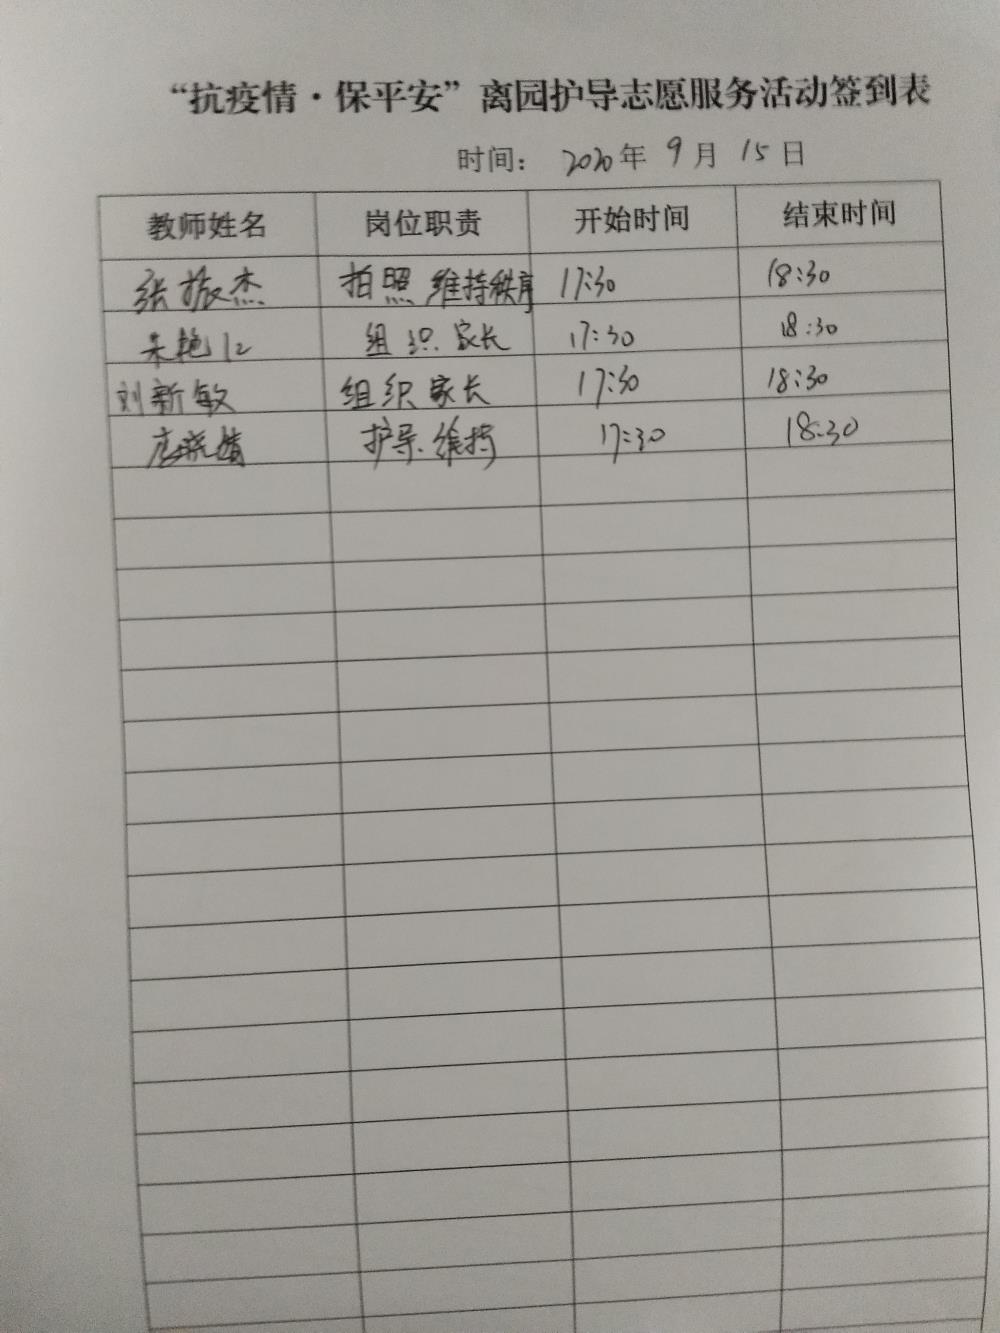 “抗疫情·保平安”离园护导志愿服务活动签到表
时间： 2020年 9月 15日
教师姓名 岗位职责 开始时间 结束时间
张振杰 拍照 维持秩序 17:30 18:30
朱艳红 组织家长 17:30 18:30
刘新敏 组织家长 17:30 18:30
护导、维持 17:30 18:30